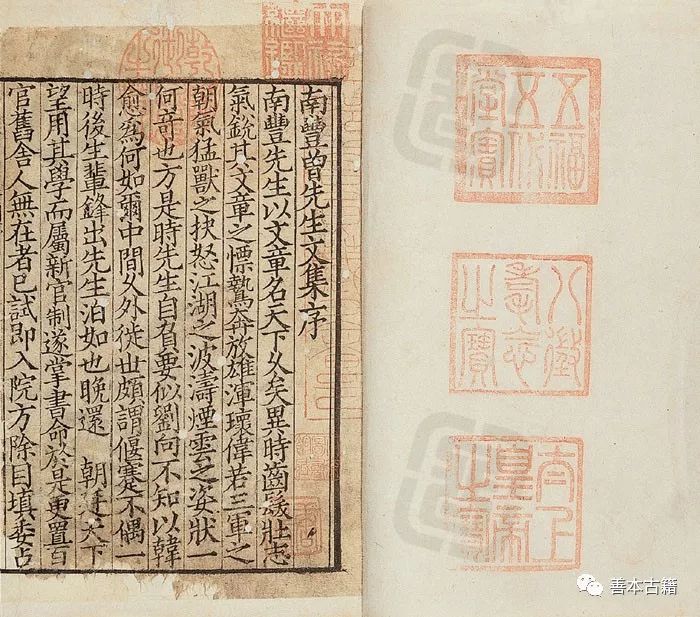 五福
五代
堂寶
八徵
耄念
之寶
太上
皇帝
之寶
天祿
繼鑑
乾隆
御覽
之寶
南豐曾先生文集序
南豐先生以文章名天下久矣異時齒髮壯志
氣銳其文章之慓鷙奔放雄渾瓌偉若三軍之
朝氣猛獸之抉怒江湖之波濤煙雲之姿狀一
何奇也方是時先生自負要似劉向不知以韓
愈爲何如爾中間久外徙世頗謂偃蹇不偶一
時後生輩鋒出先生泊如也晚還　朝廷天下
望用其學而屬新官制遂掌書命於是更置百
官舊舍人無在者已試即入院方除目填委占
善本古籍